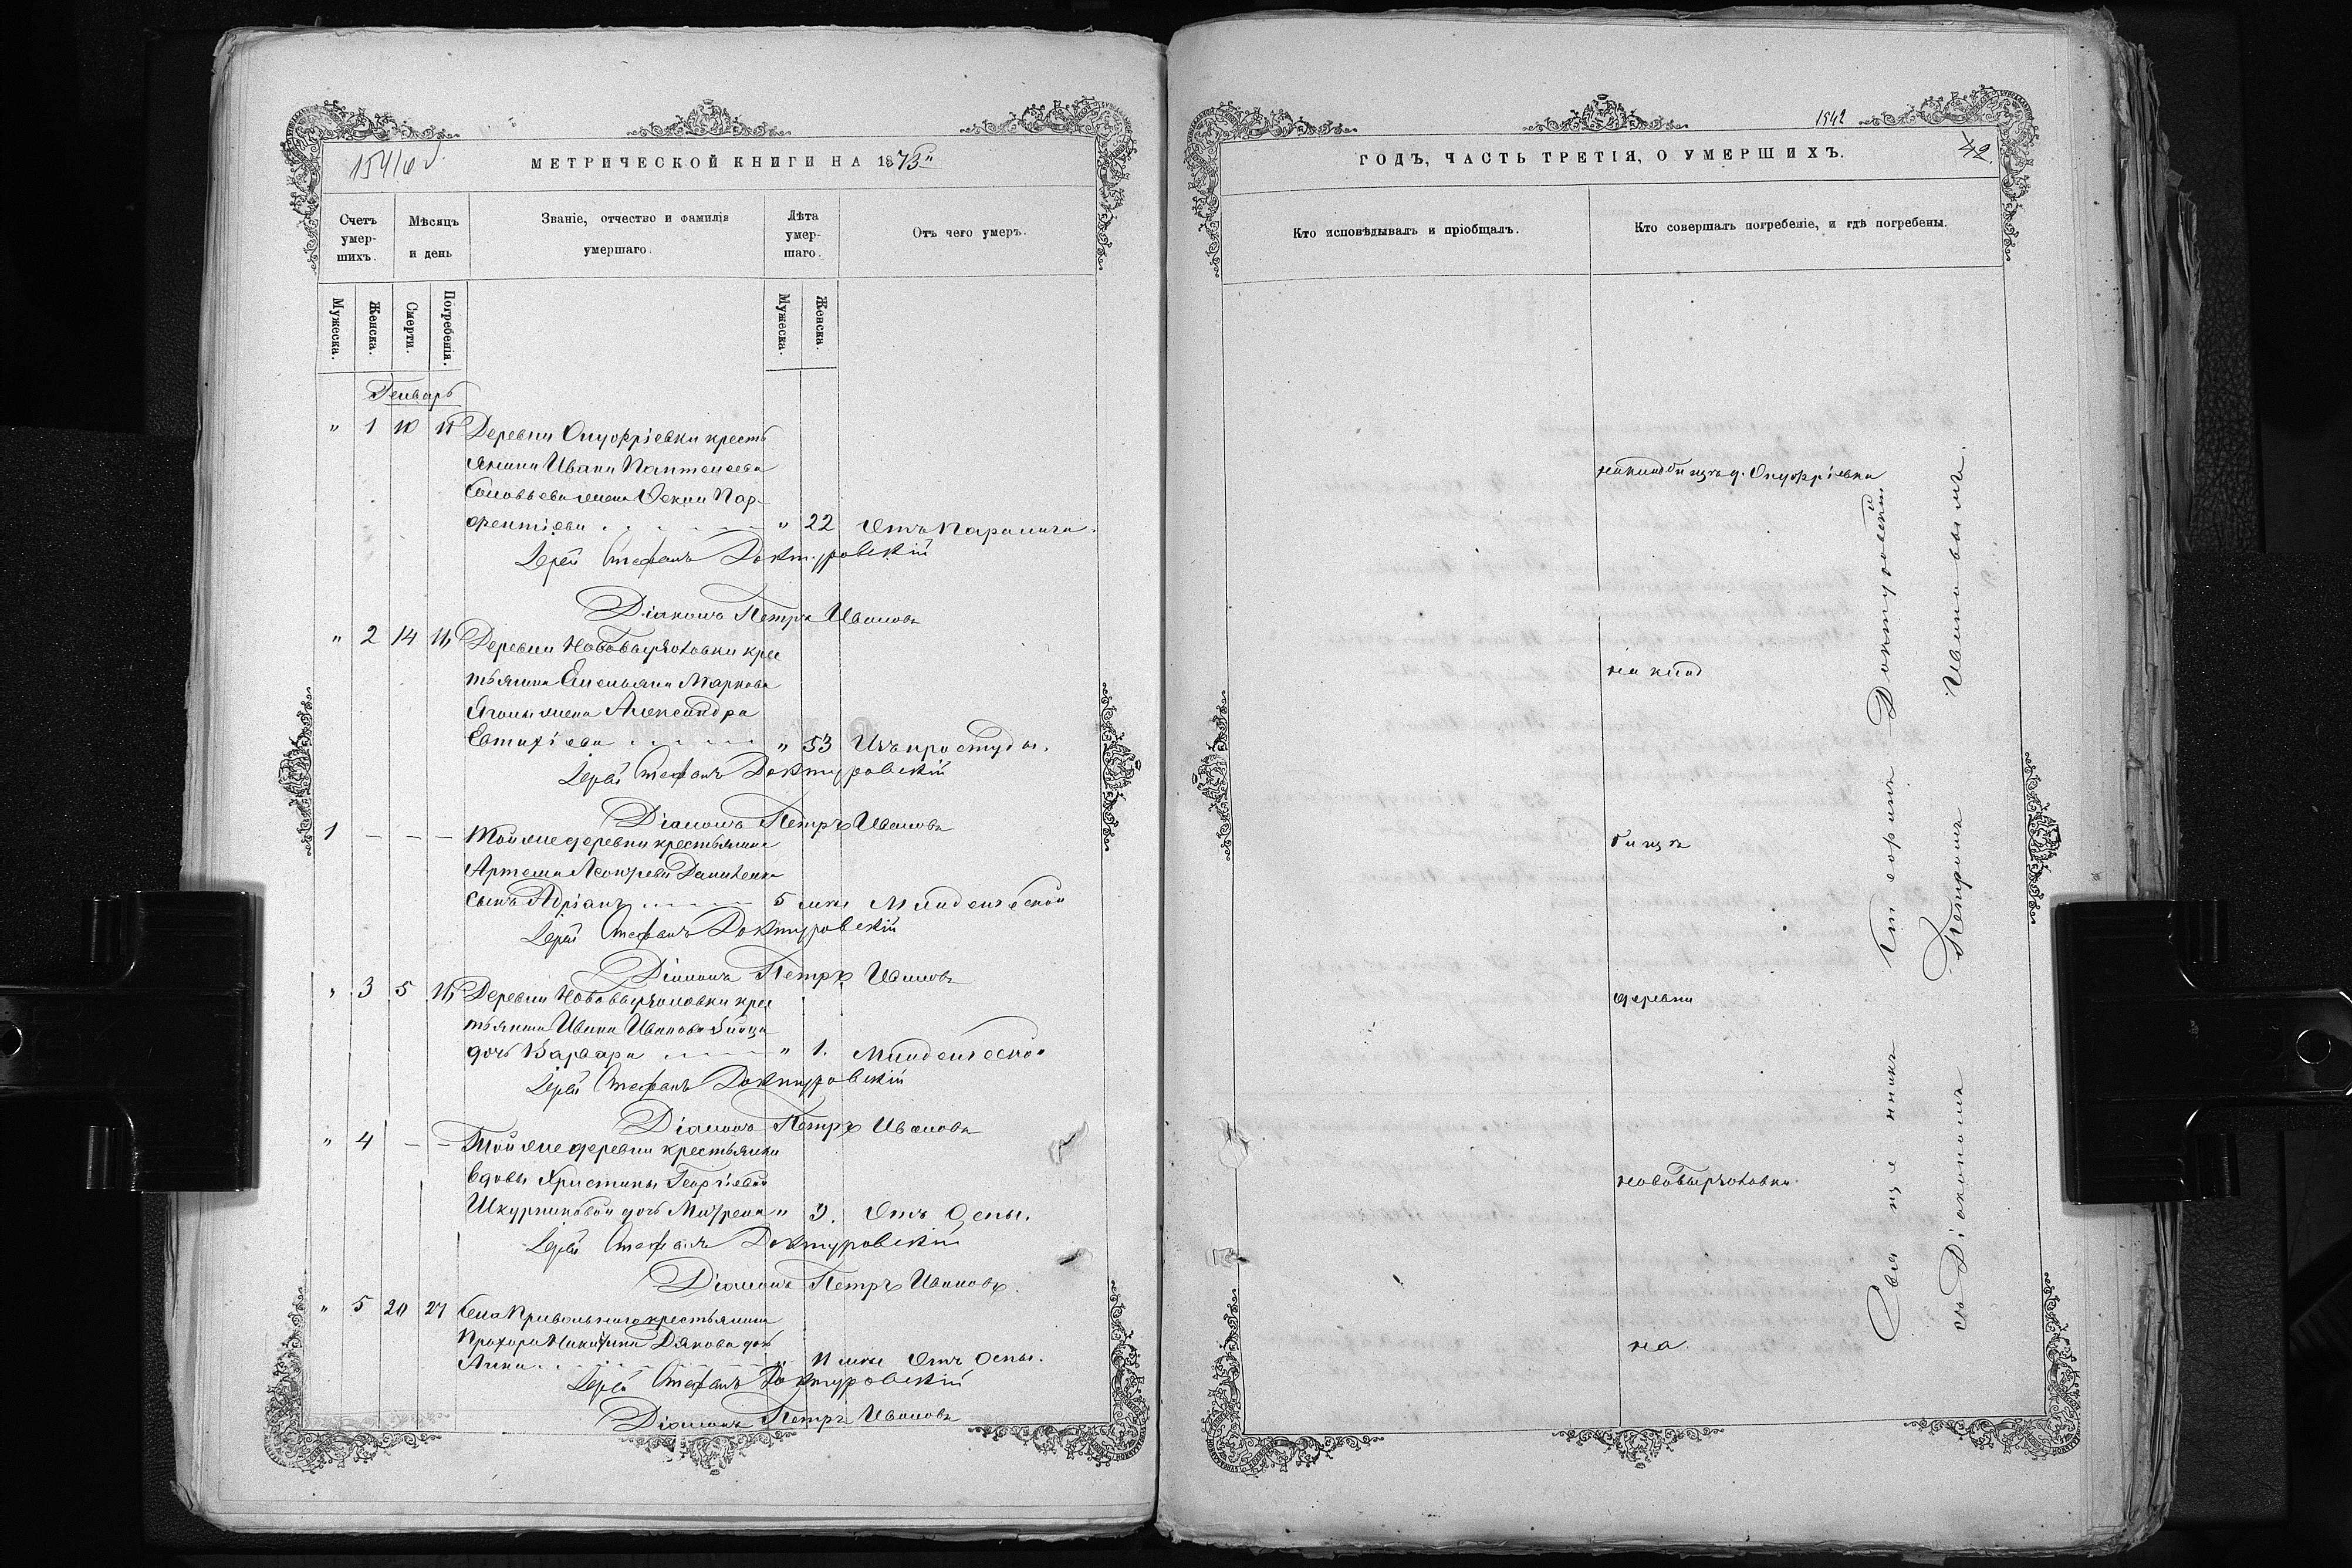 МЕТРИЧЕСКОЙ КНИГИ НА 1873
Счетъ умерших.
Мѣсяцъ и день
Званіе, отчество и фамилія умершаго.
Лѣта умершаго.
Отъ чего умеръ.
Мужеска.
Женска.
Смерти.
Погребенія.
Мужеска.
Женска.
Генварь
" 1 10 11 Деревни Онуфріевки кресть
янина Ивана Пантелеева
Соловьева жена Пар-
фентіева " 22 Отъ Паралича.
Іерей Стефанъ Доктуровскій
Діаконъ Петръ Ивановъ
" 2 14 16 Деревни крес
тьянина Емельяна Маркова
жена Александра
Евтихіева " 53 Изъ простуды.
Іерей Стефанъ Доктуровскій
Діаконъ Петръ Ивановъ
1 — — — Той же деревни крестьянина
Артема
сынъ Адріанъ 5 Младенческой
Іерей Стефанъ Доктуровскій
Діаконъ Петръ Ивановъ
" 3 5 16 Деревни крес
тьянина Ивана Иванова
дочь Варвара " 1. Младенческой
Іерей Стефанъ Доктуровскій
Діаконъ Петръ Ивановъ
" 4 — — Той же деревни крестьянки
вдовы Христины Георгіевой
дочь Матрена " 3. Отъ Оспы.
Іерей Стефанъ Доктуровскій
Діаконъ Петръ Ивановъ.
" 5 20 21 Села Привольнаго крестьянина
Прохора Никитина Дякова дочь
Анна 11 Отъ Оспы.
Іерей Стефанъ Доктуровскій
Діаконъ Петръ Ивановъ
1542
42.
ГОДЪ, ЧАСТЬ ТРЕТІЯ, О УМЕРШИХЪ.
Кто исповѣдывалъ и пріобщалъ.
Кто совершалъ погребеніе, и гдѣ погребены.
на кладбищѣ д. Онуфріевки
на клад
бищѣ
деревни
на
Священникъ Стефанъ Доктуровскій
съ Діакономъ Петромъ Ивановымъ.